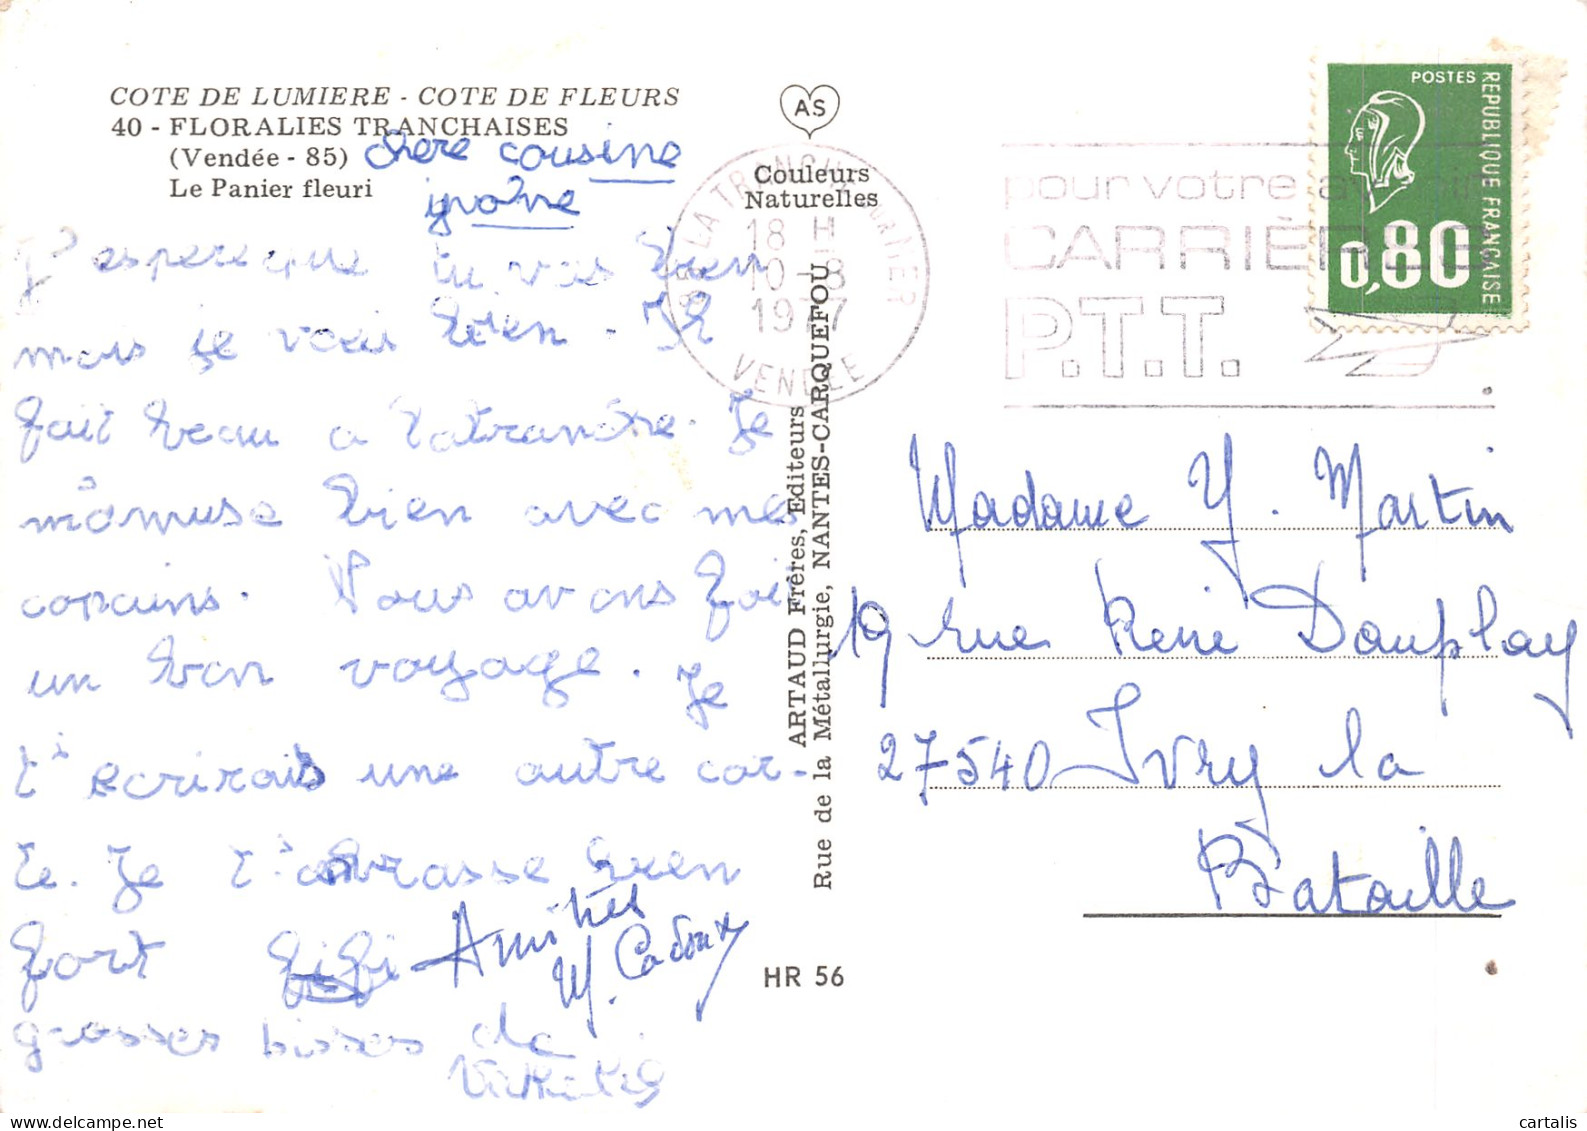 COTE DE LUMIERE - COTE DE FLEURS
40 - FLORALIES TRANCHAISES
(Vendée - 85)
Le Panier fleuri
chere cousine
yvone
J'espere que tu vas bien
mais je vais bien. Il
fait beau a latranche. Je
m'amuse bien avec mes
copains. Nous avons fait
un bon voyage. Je
t'ecrirais une autre car-
te. Je t'embrasse bien
fort fifi
Amitiés
M. Cadoux
grosses bisses de
AS
Couleurs
Naturelles
85 LA TRANCHE SUR MER
18 H
10-8
1977
VENDEE
ARTAUD Frères, Editeurs
Rue de la Métallurgie, NANTES-CARQUEFOU
HR 56
pour votre avenir
CARRIÈRES
P.T.T.
POSTES
REPUBLIQUE FRANÇAISE
0,80
Madame Y. Martin
19 rue René Dauplay
27540 Ivry la
Bataille
cartalis